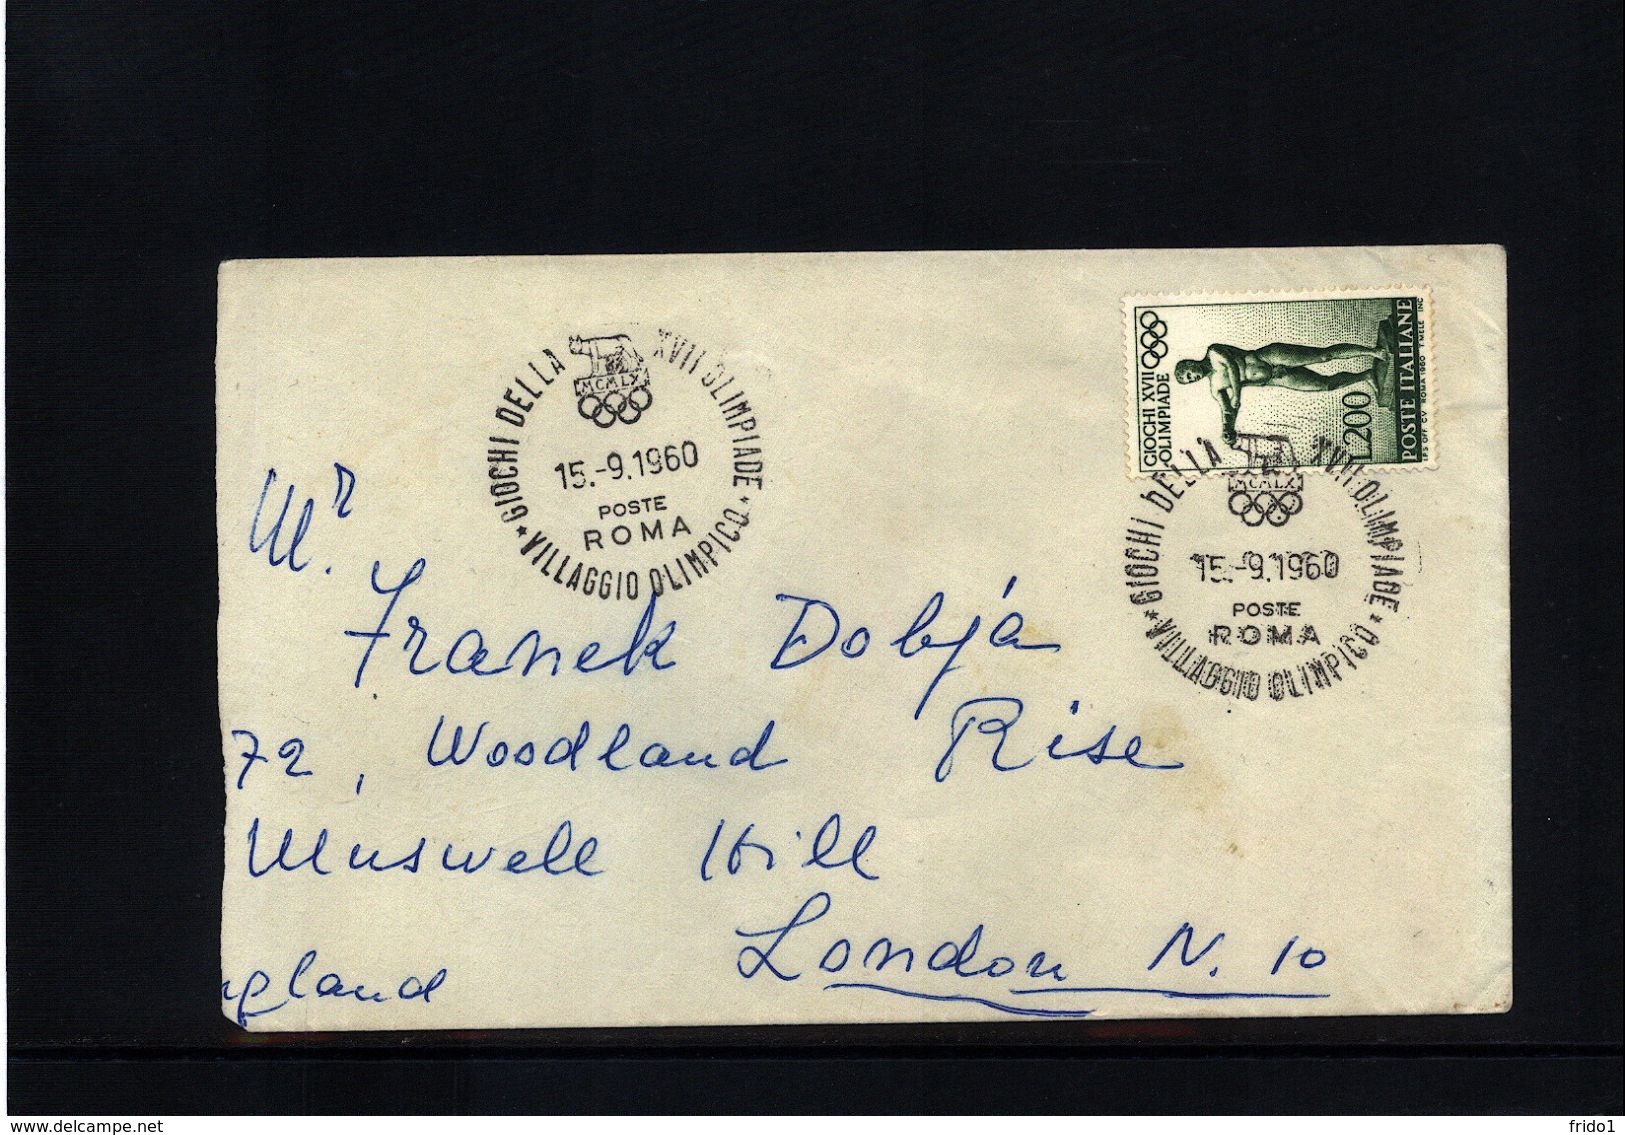 GIOCHI DELLA XVII OLIMPIADE
MCMLX
15.-9.1960
POSTE
ROMA
* VILLAGGIO OLIMPICO *
GIOCHI XVII
OLIMPIADE
L.200
POSTE ITALIANE
GIOCHI DELLA XVII OLIMPIADE
MCMLX
15.-9.1960
POSTE
ROMA
* VILLAGGIO OLIMPICO *
Mr.
Franek Dobjá
72, Woodland Rise
Muswell Hill
London N. 10
ngland
delcampe.net
frido1